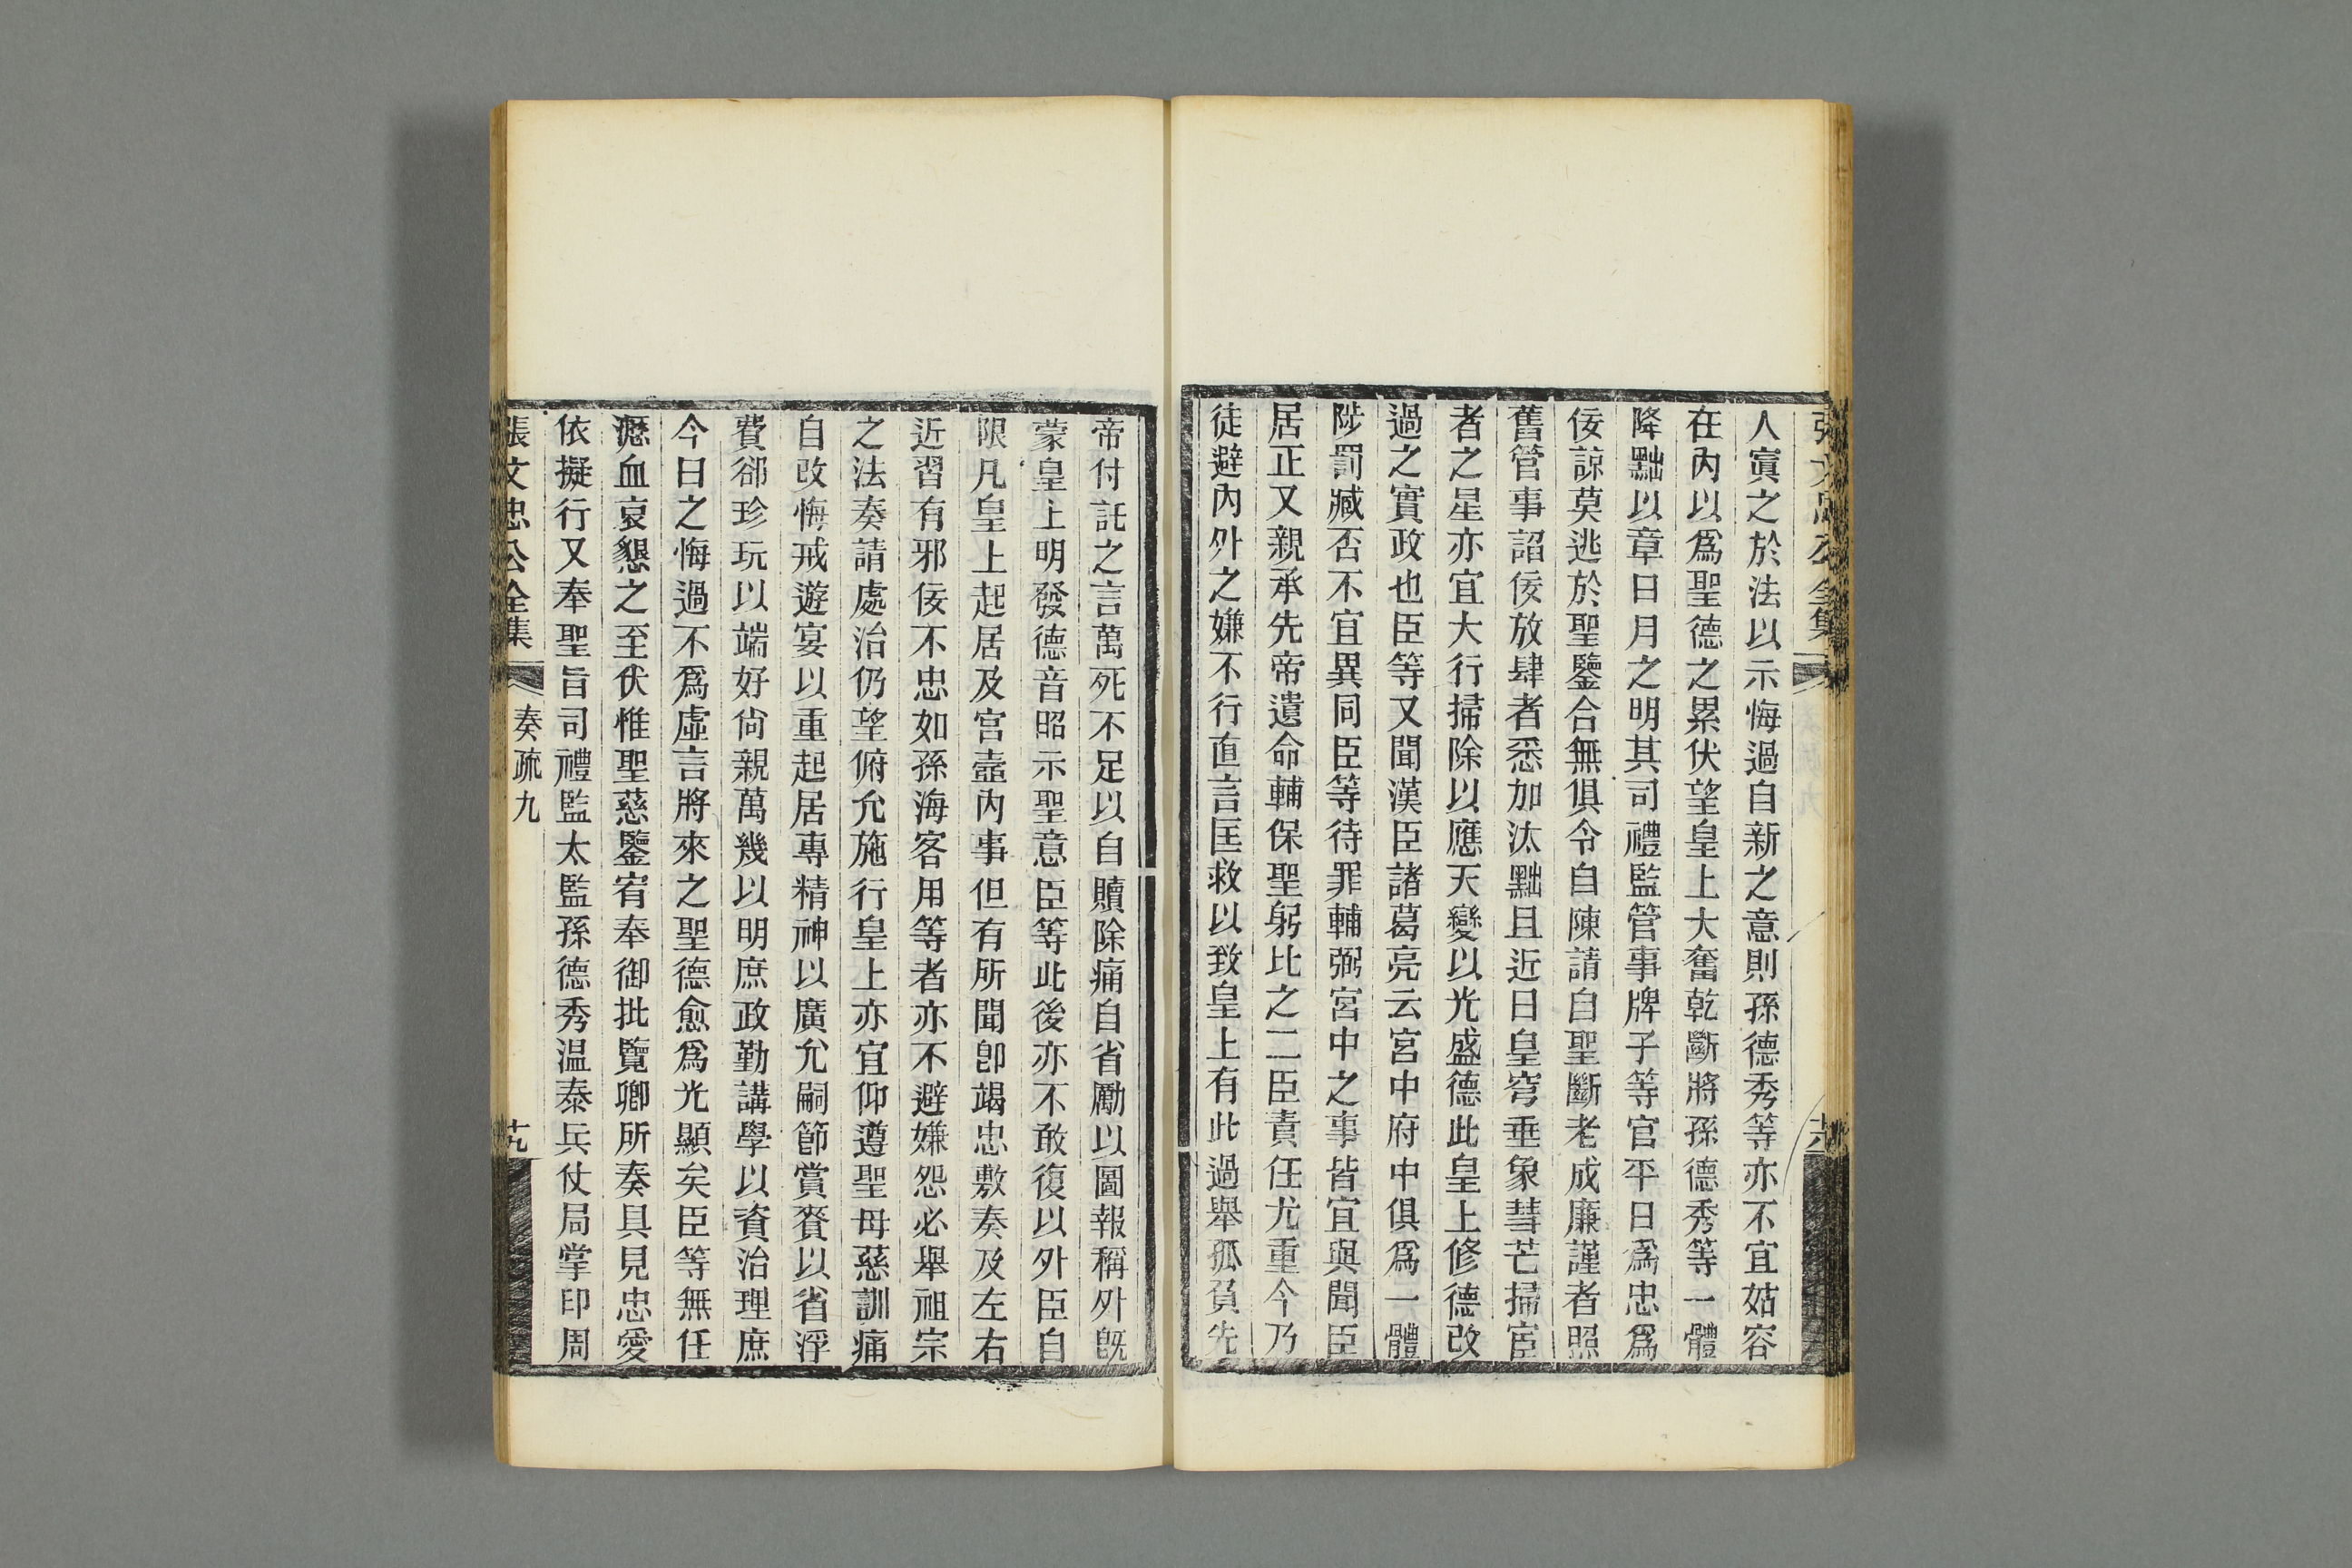 人寘之於法以示悔過自新之意則孫德秀等亦不宜姑容
在內以爲聖德之累伏望皇上大奮乾斷將孫德秀等一體
降黜以章日月之明其司禮監管事牌子等官平日爲忠爲
佞諒莫逃於聖鑒合無俱令自陳請自聖斷老成廉謹者照
舊管事諂佞放肆者悉加汰黜且近日皇穹垂象彗芒掃宦
者之星亦宜大行掃除以應天變以光盛德此皇上修德改
過之實政也臣等又聞漢臣諸葛亮云宮中府中俱爲一體
陟罰臧否不宜異同臣等待罪輔弼宮中之事皆宜與聞臣
居正又親承先帝遺命輔保聖躬比之二臣責任尤重今乃
徒避內外之嫌不行直言匡救以致皇上有此過舉孤負先
帝付託之言萬死不足以自贖除痛自省勵以圖報稱外旣
蒙皇上明發德音昭示聖意臣等此後亦不敢復以外臣自
限凡皇上起居及宮壼內事但有所聞卽竭忠敷奏及左右
近習有邪佞不忠如孫海客用等者亦不避嫌怨必舉祖宗
之法奏請處治仍望俯允施行皇上亦宜仰遵聖母慈訓痛
自改悔戒遊宴以重起居專精神以廣允嗣節賞賚以省浮
費卻珍玩以端好尙親萬幾以明庶政勤講學以資治理庶
今日之悔過不爲虛言將來之聖德愈爲光顯矣臣等無任
瀝血哀懇之至伏惟聖慈鑒宥奉御批覽卿所奏具見忠愛
依擬行又奉聖旨司禮監太監孫德秀溫泰兵仗局掌印周
張文忠公全集
奏疏九